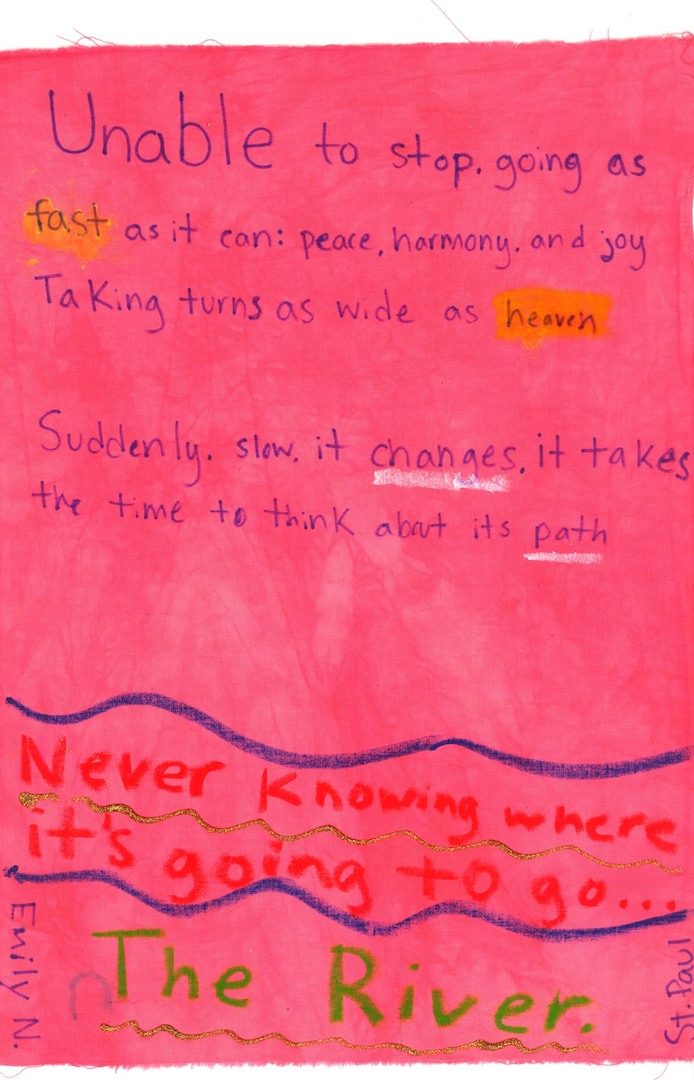 Unable to stop. going as
fast as it can: peace, harmony. and joy
Taking turns as wide as heaven
Suddenly. slow. it changes. it takes
the time to think about its path
Never knowing where
it's going to go...
The River.
Emily N.
St. Paul